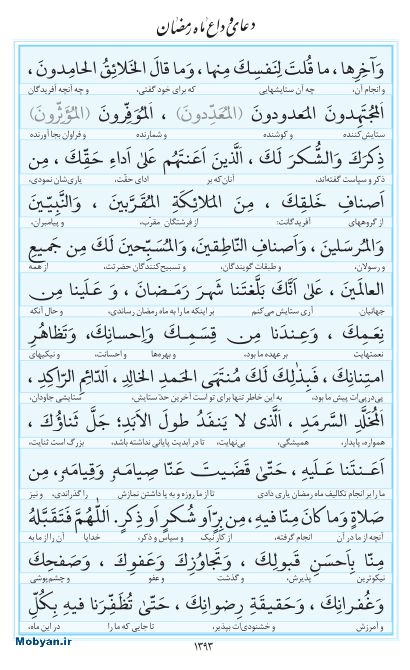 دعای وداع ماه رمضان
وَآخِرِها ، ما قُلتَ لِنَفسِكَ مِنها ، وَما قالَ الخَلائِقُ الحامِدونَ ،
و انجام آن، چه آن ستایشهایی که برای خود گفتی، و چه آنچه آفریدگان
المُجتَهِدونَ المَعدودونَ (المُعَدِّدونَ) ، المُوَفِّرونَ (المُؤَثِّرونَ)
ستایش‌کننده و کوشنده و شمارنده و فراوان بجا آورنده
ذِكرَكَ وَالشُّكرَ لَكَ ، الَّذينَ اَعَنتَهُم عَلىٰ اَداءِ حَقِّكَ ، مِن
ذکر و سپاست گفته‌اند، آنان‌که بر ادای حقّت، یاری‌شان نمودی،
اَصنافِ خَلقِكَ ، مِنَ المَلائِكَةِ المُقَرَّبينَ ، وَالنَّبِيّينَ
از گروههای آفریدگانت: از فرشتگان مقرّب، و پیامبران،
وَالمُرسَلينَ ، وَاَصنافِ النّاطِقينَ، وَالمُسَبِّحينَ لَكَ مِن جَميعِ
و رسولان، و طبقات گویندگان، و تسبیح‌کنندگان حضرتت، از همه
العالَمينَ ، عَلىٰ اَنَّكَ بَلَّغتَنا شَهرَ رَمَضانَ ، وَ عَلَينا مِن
جهانیان آری ستایش می‌کنم بر اینکه ما را به ماه رمضان رساندی، و حال آنکه
نِعَمِكَ ، وَعِندَنا مِن قِسَمِكَ وَاِحسانِكَ، وَتَظاهُرِ
نعمتهایت بر عهده ما بود، و بهره‌ها و احسانت، و نیکیهای
امتِنانِكَ ، فَبِذٰلِكَ لَكَ مُنتَهَى الحَمدِ الخالِدِ ، الدّائِمِ الرّاكِدِ ،
پی‌درپی‌ات پیش ما بود، به این خاطر تنها برای تو است آخرین حدّ ستایش، ستایشی جاودان،
المُخَلَّدِ السَّرمَدِ ، الَّذى لا يَنفَدُ طولَ الاَبَدِ؛ جَلَّ ثَناؤُكَ ،
همواره، پایدار، همیشگی، بی‌نهایت، تا در ابدیت پایانی نداشته باشد، بزرگ است ثنایت،
اَعَنتَنا عَلَيهِ ، حَتّىٰ قَضَيتَ عَنّا صِيامَهُ وَقِيامَهُ، مِن
ما را بر انجام تکالیف ماه رمضان یاری دادی تا از ما روزه و به پا داشتن نمازش را گذراندی، و نیز
صَلاةٍ وَما كانَ مِنّا فيهِ، مِن بِرٍّ اَو شُكرٍ اَو ذِكرٍ. اَللّٰهُمَّ فَتَقَبَّلهُ
آنچه از ما در آن انجام گرفته، از کار نیک و سپاس و ذکر، خدایا آن را از ما به
مِنّا بِاَحسَنِ قَبولِكَ ، وَتَجاوُزِكَ وَعَفوِكَ ، وَصَفحِكَ
نیکوترین پذیرش، و گذشت و عفو و چشم‌پوشی
وَغُفرانِكَ ، وَحَقيقَةِ رِضوانِكَ ، حَتّىٰ تُظَفِّرَنا فيهِ بِكُلِّ
و آمرزش و خشنودی‌ات بپذیر، تا جایی که ما را در این ماه،
۱۳۹۳
Mobyan.ir